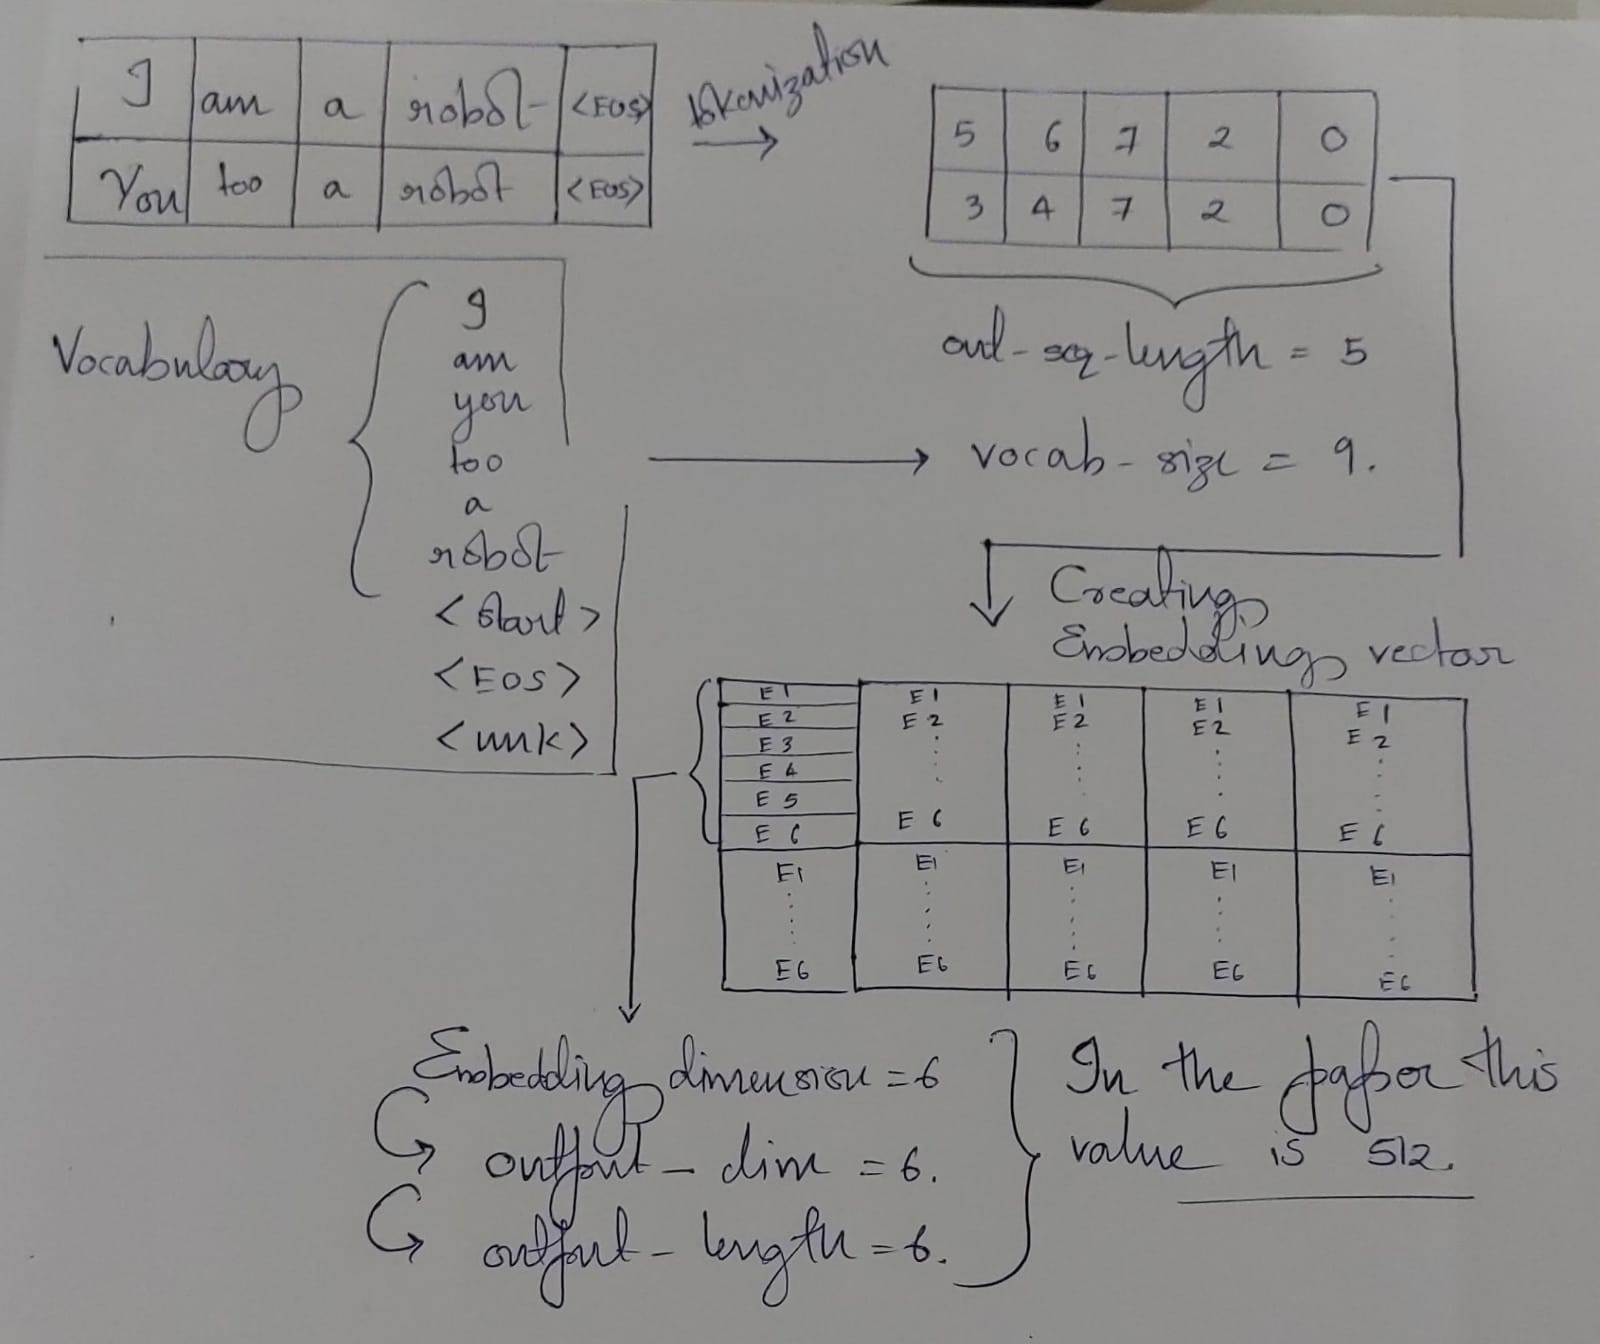 I am a robot <EOS>
You too a robot <EOS>
tokenization
5 6 7 2 0
3 4 7 2 0
out-seq-length = 5
Vocabulary
I
am
you
too
a
robot
<start>
<EOS>
<unk>
vocab-size = 9.
Creating
Embedding vector
E1 E1 E1 E1 E1
E2 E2 E2 E2 E2
E3
E4
E5
E6 E6 E6 E6 E6
E1 E1 E1 E1 E1
E6 E6 E6 E6 E6
Embedding dimension = 6
output-dim = 6.
output-length = 6.
In the paper this
value is 512.